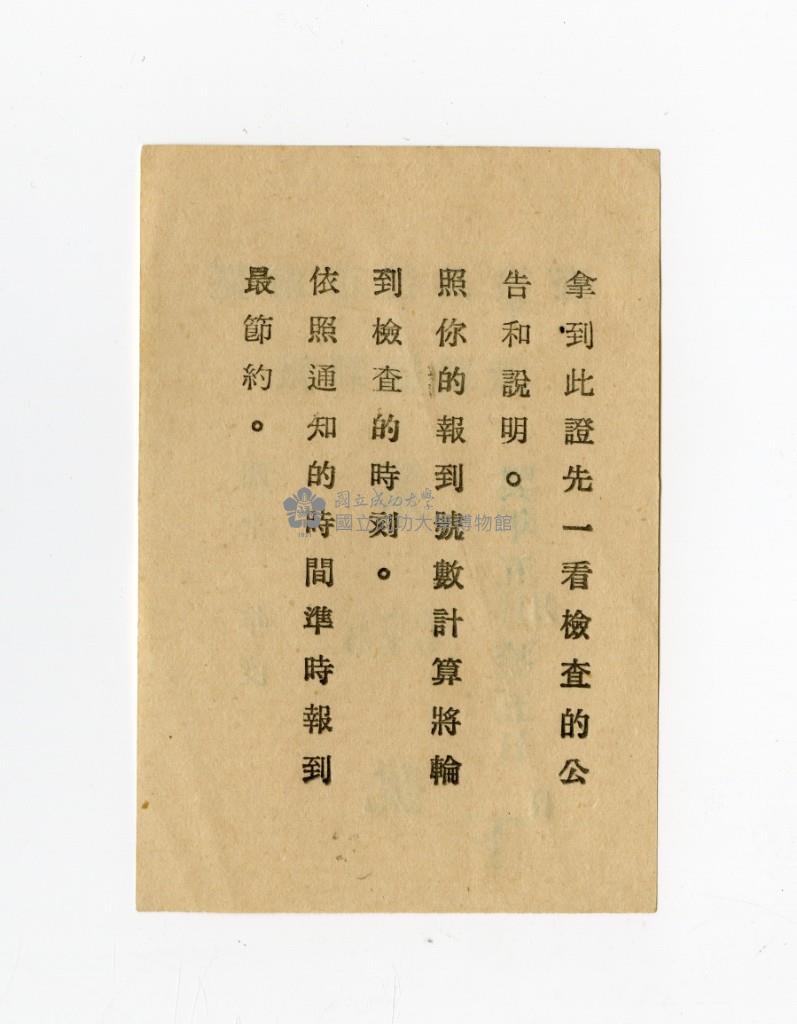 拿到此證先一看檢查的公
告和說明。
照你的報到號數計算將輪
到檢查的時刻。
依照通知的時間準時報到
最節約。
國立成功大學
國立成功大學博物館